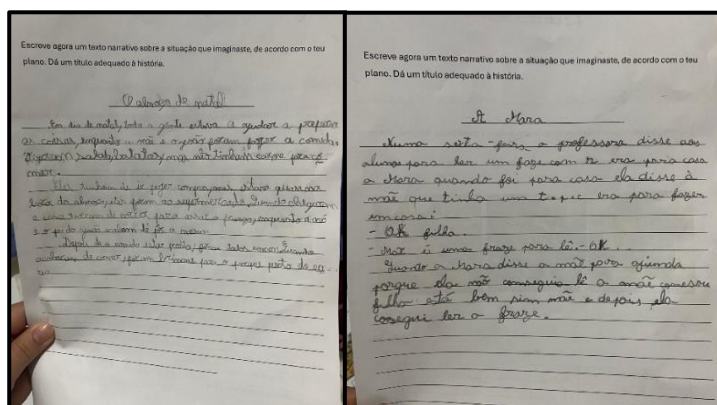 Escreve agora um texto narrativo sobre a situação que imaginaste, de acordo com o teu
plano. Dá um título adequado à história.
O almoço de natal
Em dia de natal, toda a gente estava a ajudar a preparar
as coisas, enquanto a mãe e a foram fazer a comida.
salada, batatas, mas não tinham carne para co-
mer.
Eles tinham de ir fazer compras, mas, estava quase na
hora do almoço, eles foram ao supermercado. Quando chegaram
a casa
e o
Depois de a comida estar pronta, foram todos comer. Quando
acabaram de comer, foram brincar para o parque perto da ca-
sa.
Escreve agora um texto narrativo sobre a situação que imaginaste, de acordo com o teu
plano. Dá um título adequado à história.
A Mara
Numa sesta-feira a professora disse aos
alunos para ler um faze com r era para casa
a Mara quando foi para casa ela disse à
mãe que tinha um t.p.c era para fazer
em casa:
- OK filha.
- Mãe é uma fraze para lê. - OK.
Quando a Mara disse a mãe para ajuda
porque ela não conseguia lê a mãe
filha está bem sim mãe e depois ela
consegui ler a fraze.